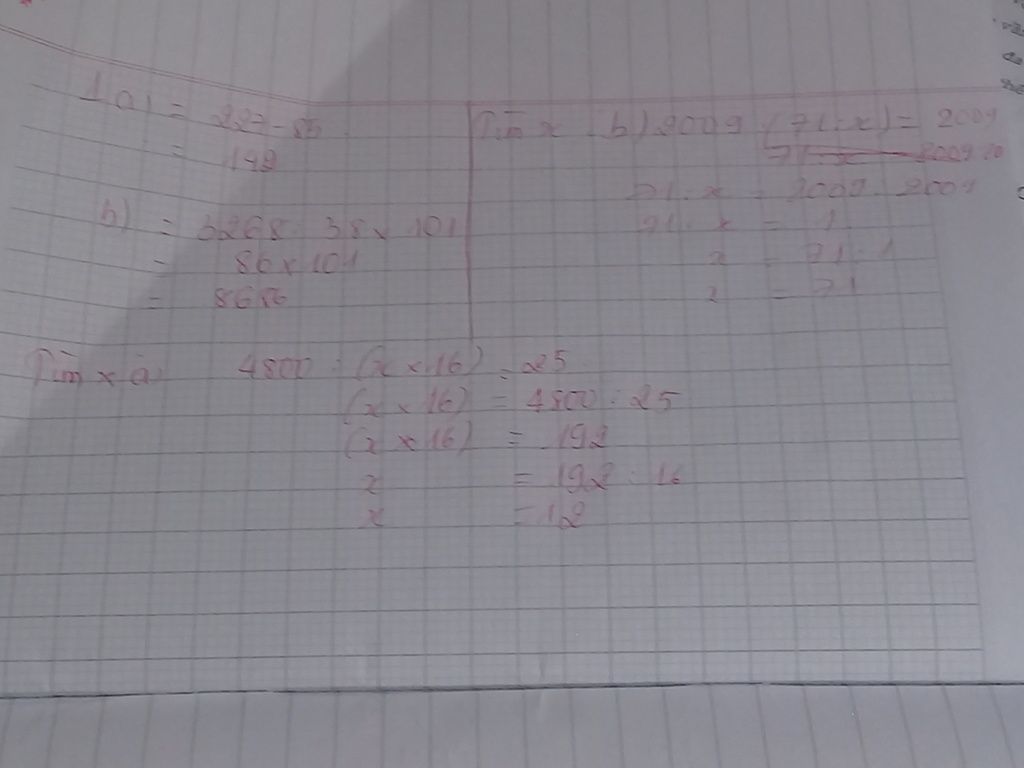 1 a) = 227 - 85
= 142
b) = 3268 : 38 x 101
= 86 x 101
= 8686
Tìm x b) 2009 : (71 : x) = 2009
71 : x = 2009 : 2009
71 : x = 1
x = 71 : 1
x = 71
Tìm x a) 4800 : (x x 16) = 25
(x x 16) = 4800 : 25
(x x 16) = 192
x = 192 : 16
x = 12